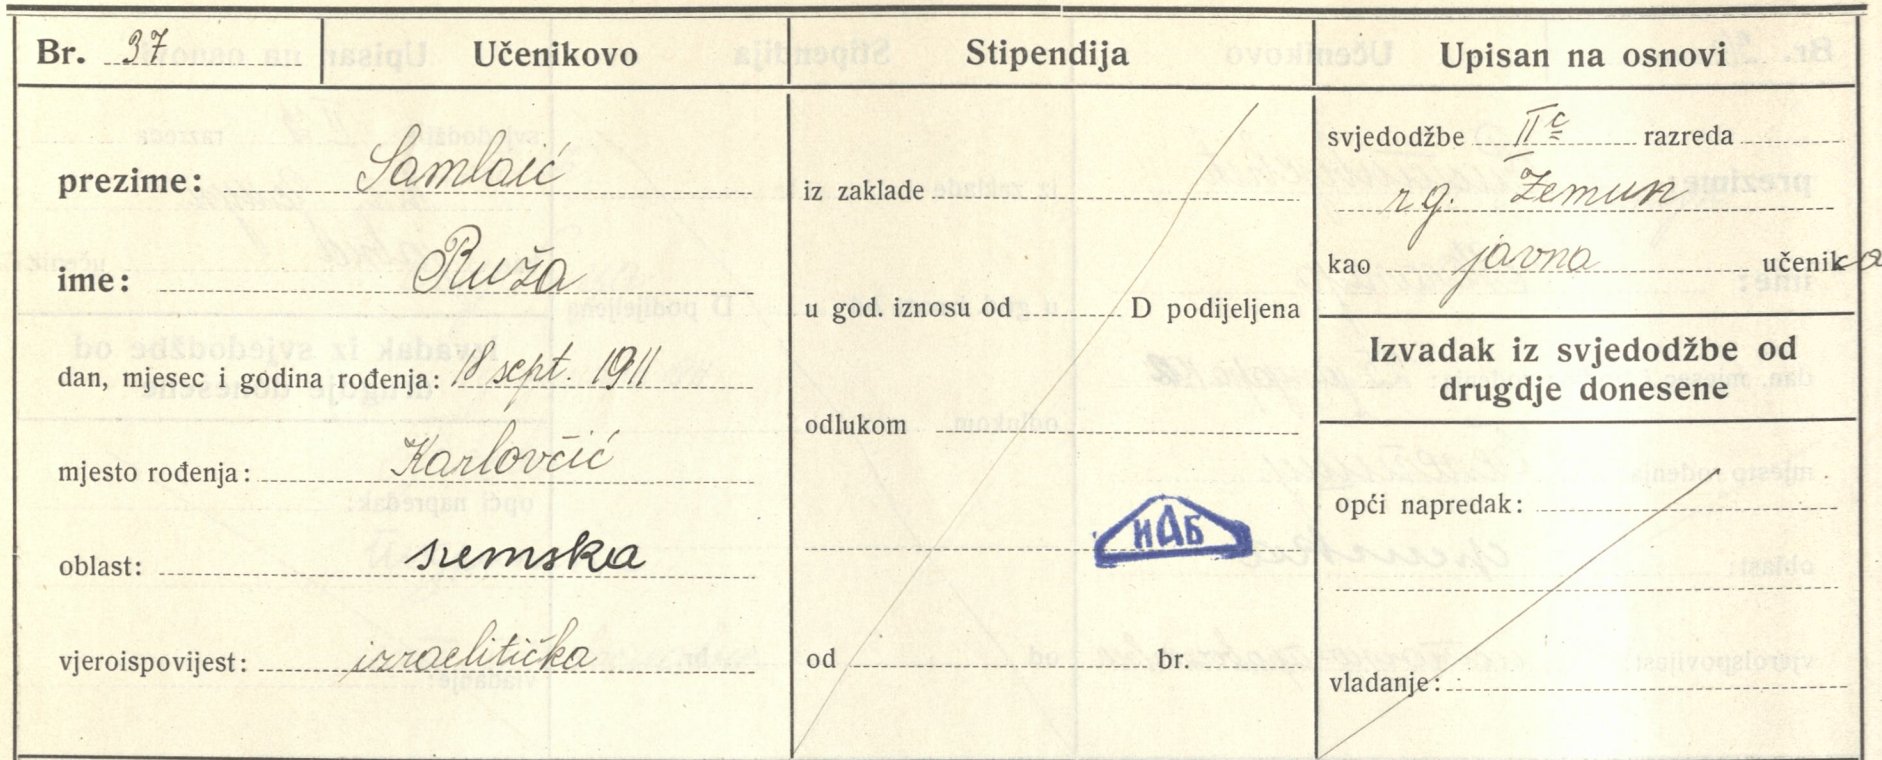 Br. 37
Učenikovo
prezime: Samlaić
ime: Ruža
dan, mjesec i godina rođenja: 18 sept. 1911
mjesto rođenja: Karlovčić
oblast: sremska
vjeroispovijest: izraelitička
Stipendija
iz zaklade
u god. iznosu od D podijeljena
odlukom
ИАБ
od br.
Upisan na osnovi
svjedodžbe II c razreda
r.g. Zemun
kao javna učenika
Izvadak iz svjedodžbe od
drugdje donesene
opći napredak:
vladanje: